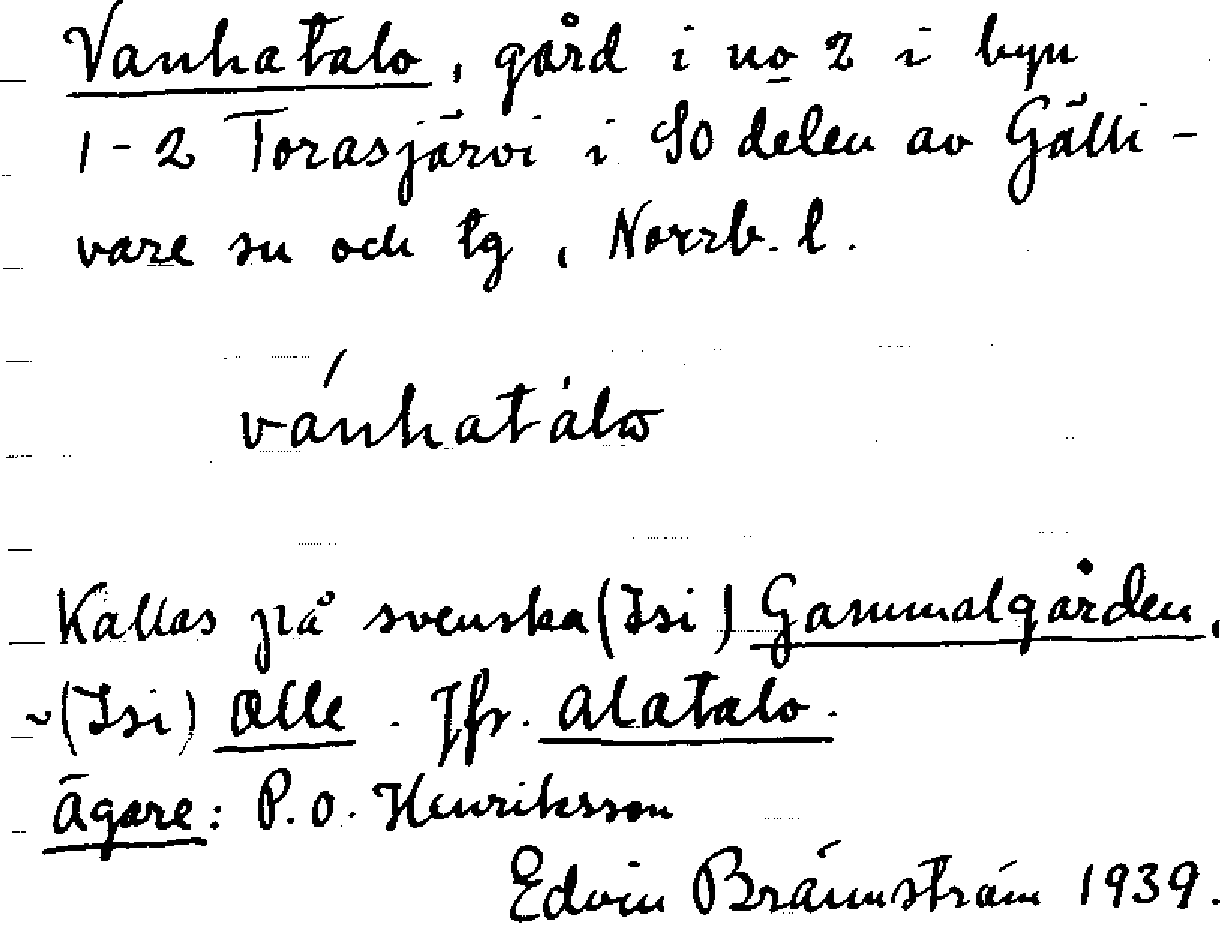 Vanhatalo, gård i no 2 i byn
1-2 Torasjärvi i SO delen av Gälli-
vare sn och tg, Norrb. l.
vánhatálω
Kallas på svenska (Isi) Gammalgården,
~(Isi) Olle. Jfr. Alatalo.
Ägare: P.O. Henriksson
Edvin Brännström 1939.